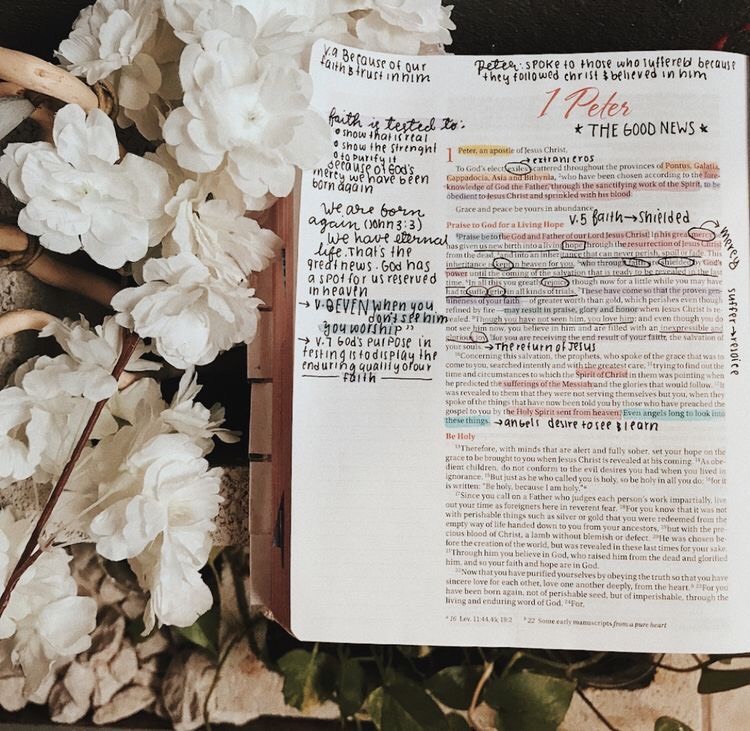 v.9 Because of our
faith & trust in him
Peter: spoke to those who suffered because
they followed christ & believed in him
1 Peter
* THE GOOD NEWS *
faith is tested to:
• show that is real
• show the strenght
• to purify it
because of God's
mercy we have been
born again
We are born
again (John 3:3)
We have eternal
life. That's the
great news. God has
a spot for us reserved
in heaven
→ v.8 EVEN when you
don't see him
you worship"
→ v.7 God's purpose in
testing is to display the
enduring quality of our
faith
1 Peter, an apostle of Jesus Christ,
→ extranjeros
To God's elect, exiles scattered throughout the provinces of Pontus, Galatia,
Cappadocia, Asia and Bithynia, 2who have been chosen according to the fore-
knowledge of God the Father, through the sanctifying work of the Spirit, to be
obedient to Jesus Christ and sprinkled with his blood:
Grace and peace be yours in abundance.
v.5 faith → shielded
Praise to God for a Living Hope
3Praise be to the God and Father of our Lord Jesus Christ! In his great mercy he
has given us new birth into a living hope through the resurrection of Jesus Christ
from the dead, 4and into an inheritance that can never perish, spoil or fade. This
inheritance is kept in heaven for you, 5who through faith are shielded by God's
power until the coming of the salvation that is ready to be revealed in the last
time. 6In all this you greatly rejoice, though now for a little while you may have
had to suffer grief in all kinds of trials. 7These have come so that the proven gen-
uineness of your faith—of greater worth than gold, which perishes even though
refined by fire—may result in praise, glory and honor when Jesus Christ is re-
vealed. 8Though you have not seen him, you love him; and even though you do
not see him now, you believe in him and are filled with an inexpressible and
glorious joy, 9for you are receiving the end result of your faith, the salvation of
your souls. → The return of Jesus
mercy
suffer → rejoice
10Concerning this salvation, the prophets, who spoke of the grace that was to
come to you, searched intently and with the greatest care, 11trying to find out the
time and circumstances to which the Spirit of Christ in them was pointing when
he predicted the sufferings of the Messiah and the glories that would follow. 12It
was revealed to them that they were not serving themselves but you, when they
spoke of the things that have now been told you by those who have preached the
gospel to you by the Holy Spirit sent from heaven. Even angels long to look into
these things. → angels desire to see & learn
Be Holy
13Therefore, with minds that are alert and fully sober, set your hope on the
grace to be brought to you when Jesus Christ is revealed at his coming. 14As obe-
dient children, do not conform to the evil desires you had when you lived in
ignorance. 15But just as he who called you is holy, so be holy in all you do; 16for it
is written: "Be holy, because I am holy."a
17Since you call on a Father who judges each person's work impartially, live
out your time as foreigners here in reverent fear. 18For you know that it was not
with perishable things such as silver or gold that you were redeemed from the
empty way of life handed down to you from your ancestors, 19but with the pre-
cious blood of Christ, a lamb without blemish or defect. 20He was chosen be-
fore the creation of the world, but was revealed in these last times for your sake.
21Through him you believe in God, who raised him from the dead and glorified
him, and so your faith and hope are in God.
22Now that you have purified yourselves by obeying the truth so that you have
sincere love for each other, love one another deeply, from the heart.b 23For you
have been born again, not of perishable seed, but of imperishable, through the
living and enduring word of God. 24For,
a 16 Lev. 11:44,45; 19:2 b 22 Some early manuscripts from a pure heart